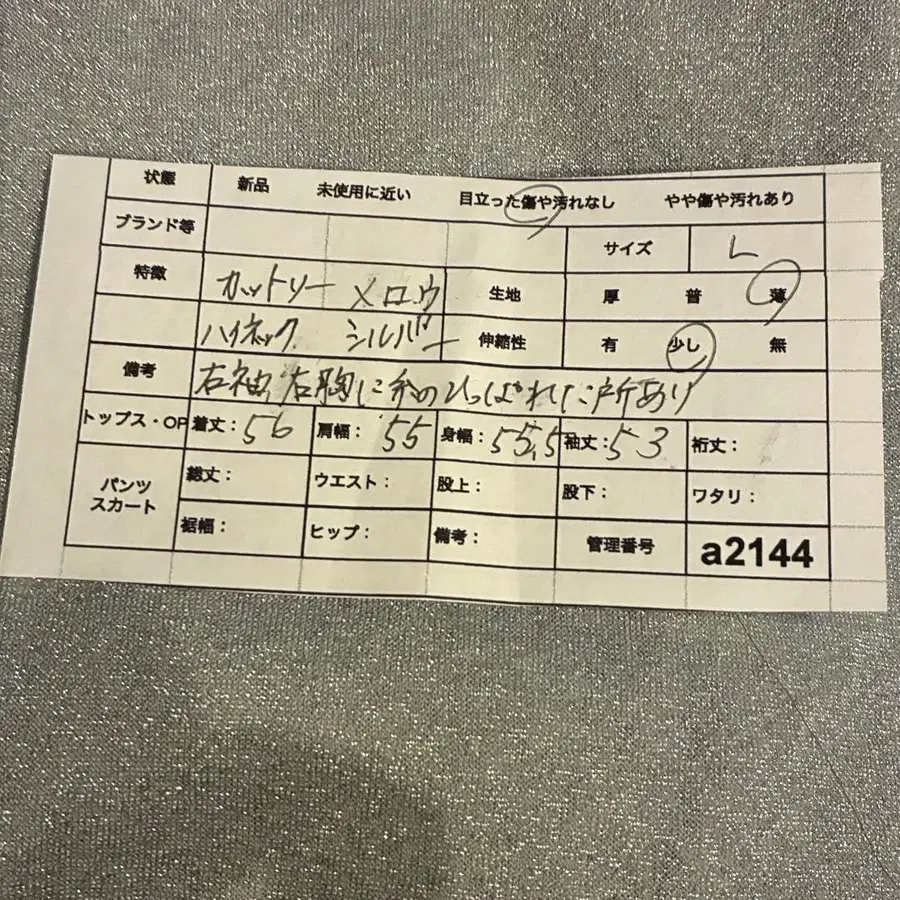 状態 新品 未使用に近い 目立った傷や汚れなし やや傷や汚れあり
ブランド等 サイズ L
特徴 カットソー メロウ 生地 厚 普 薄
ハイネック シルバー 伸縮性 有 少し 無
備考 右袖、右胸に糸のひっぱれた所あり
トップス・OP 着丈:56 肩幅:55 身幅:55.5 袖丈:53 裄丈:
パンツ スカート 総丈: ウエスト: 股上: 股下: ワタリ:
裾幅: ヒップ: 備考: 管理番号 a2144